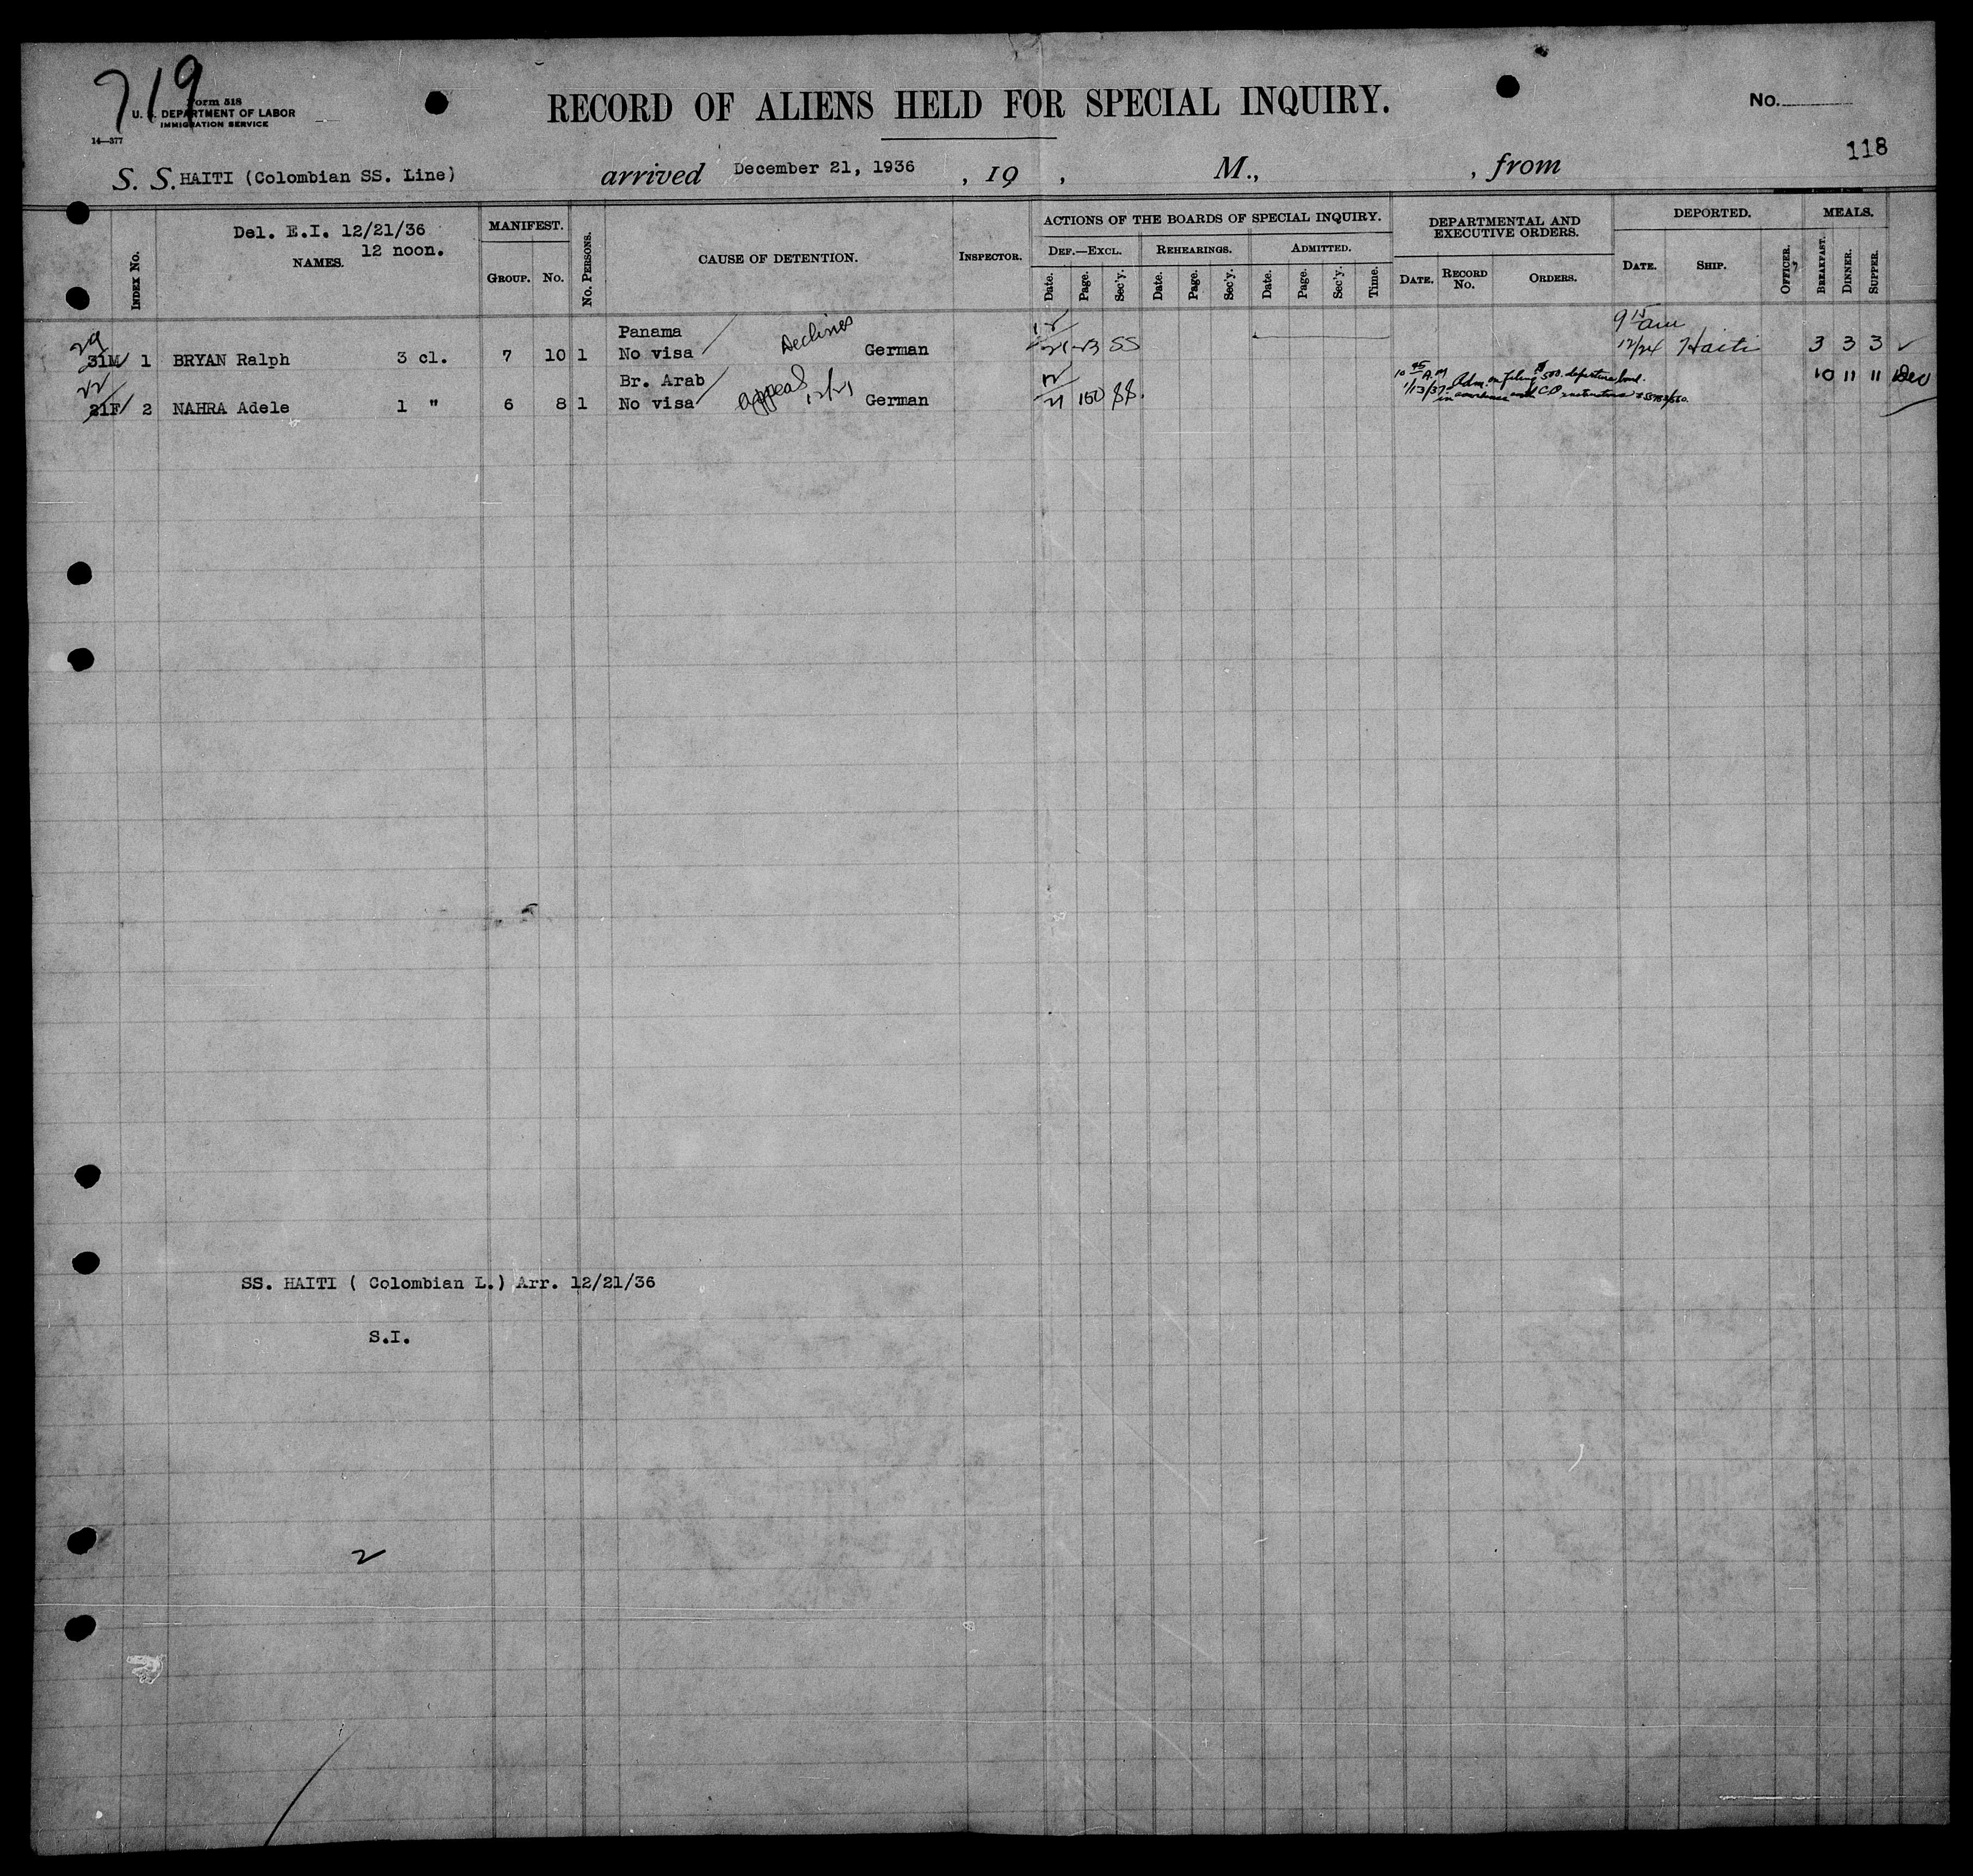 719
Form 518
U. S. DEPARTMENT OF LABOR
IMMIGRATION SERVICE
14—377
RECORD OF ALIENS HELD FOR SPECIAL INQUIRY.
No.
118
S. S. HAITI (Colombian SS. Line) arrived December 21, 1936 , 19 , M., , from
INDEX No.
Del. E.I. 12/21/36
12 noon.
NAMES.
MANIFEST.
GROUP. No.
No. PERSONS.
CAUSE OF DETENTION.
INSPECTOR.
ACTIONS OF THE BOARDS OF SPECIAL INQUIRY.
DEF.—EXCL. REHEARINGS. ADMITTED.
Date. Page. Sec'y. Date. Page. Sec'y. Date. Page. Sec'y. Time.
DEPARTMENTAL AND
EXECUTIVE ORDERS.
DATE. RECORD No. ORDERS.
DEPORTED.
DATE. SHIP. OFFICER.
MEALS.
BREAKFAST. DINNER. SUPPER.
29 Panama Declines 12 9 15 am
31M 1 BRYAN Ralph 3 cl. 7 10 1 No visa German 21 SS 12/24 Haiti 3 3 3
22 Br. Arab appeal 12/21 12 10 45 A.M. Adm. on filing $500. departure bond. 10 11 11
21F 2 NAHRA Adele 1 " 6 8 1 No visa German 21 150 1/13/37 in accordance with C.O. instructions
SS. HAITI ( Colombian L.) Arr. 12/21/36
S.I.
2